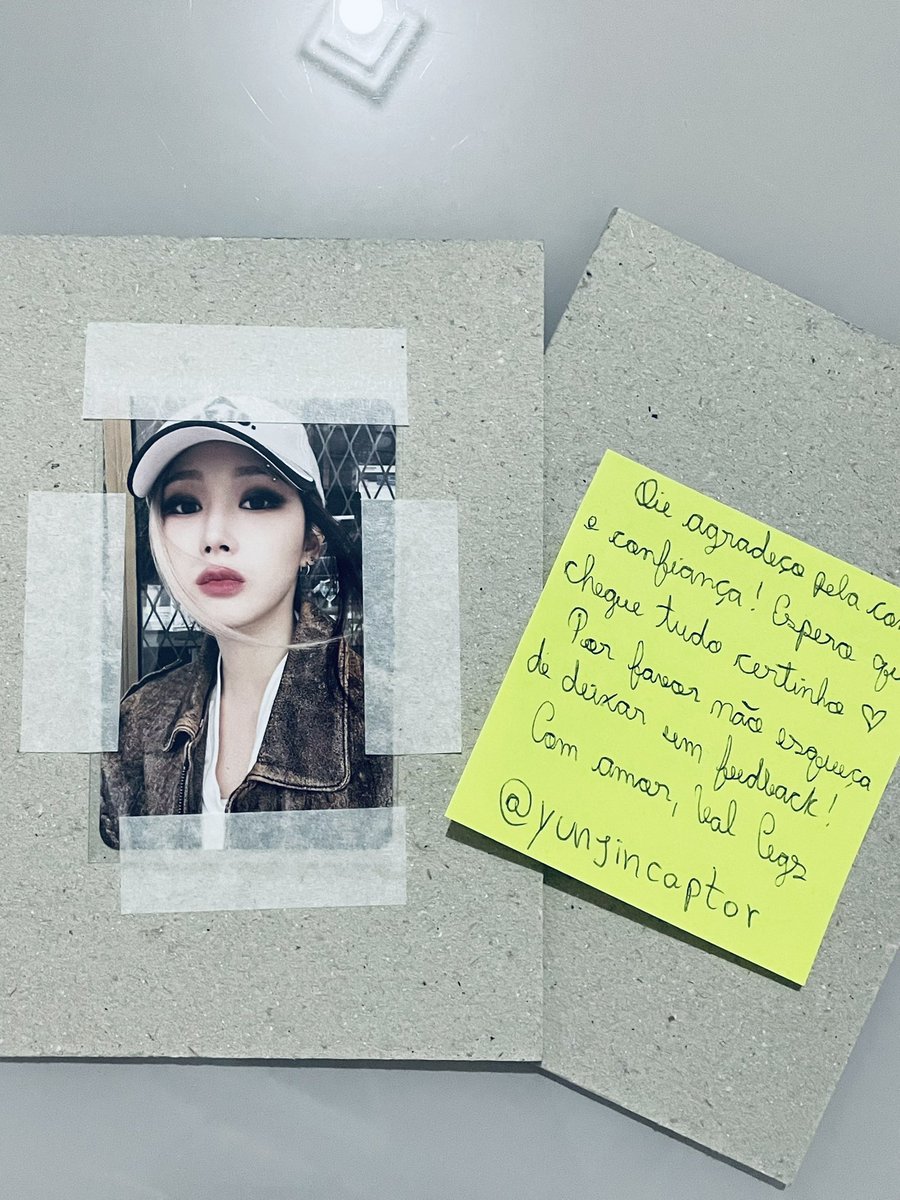 Oie agradeço pela com
e confiança! Espero qu
chegue tudo certinho ♡
Por favor não esqueça
de deixar um feedback!
Com amor, Val Cegs
@yunjincaptor